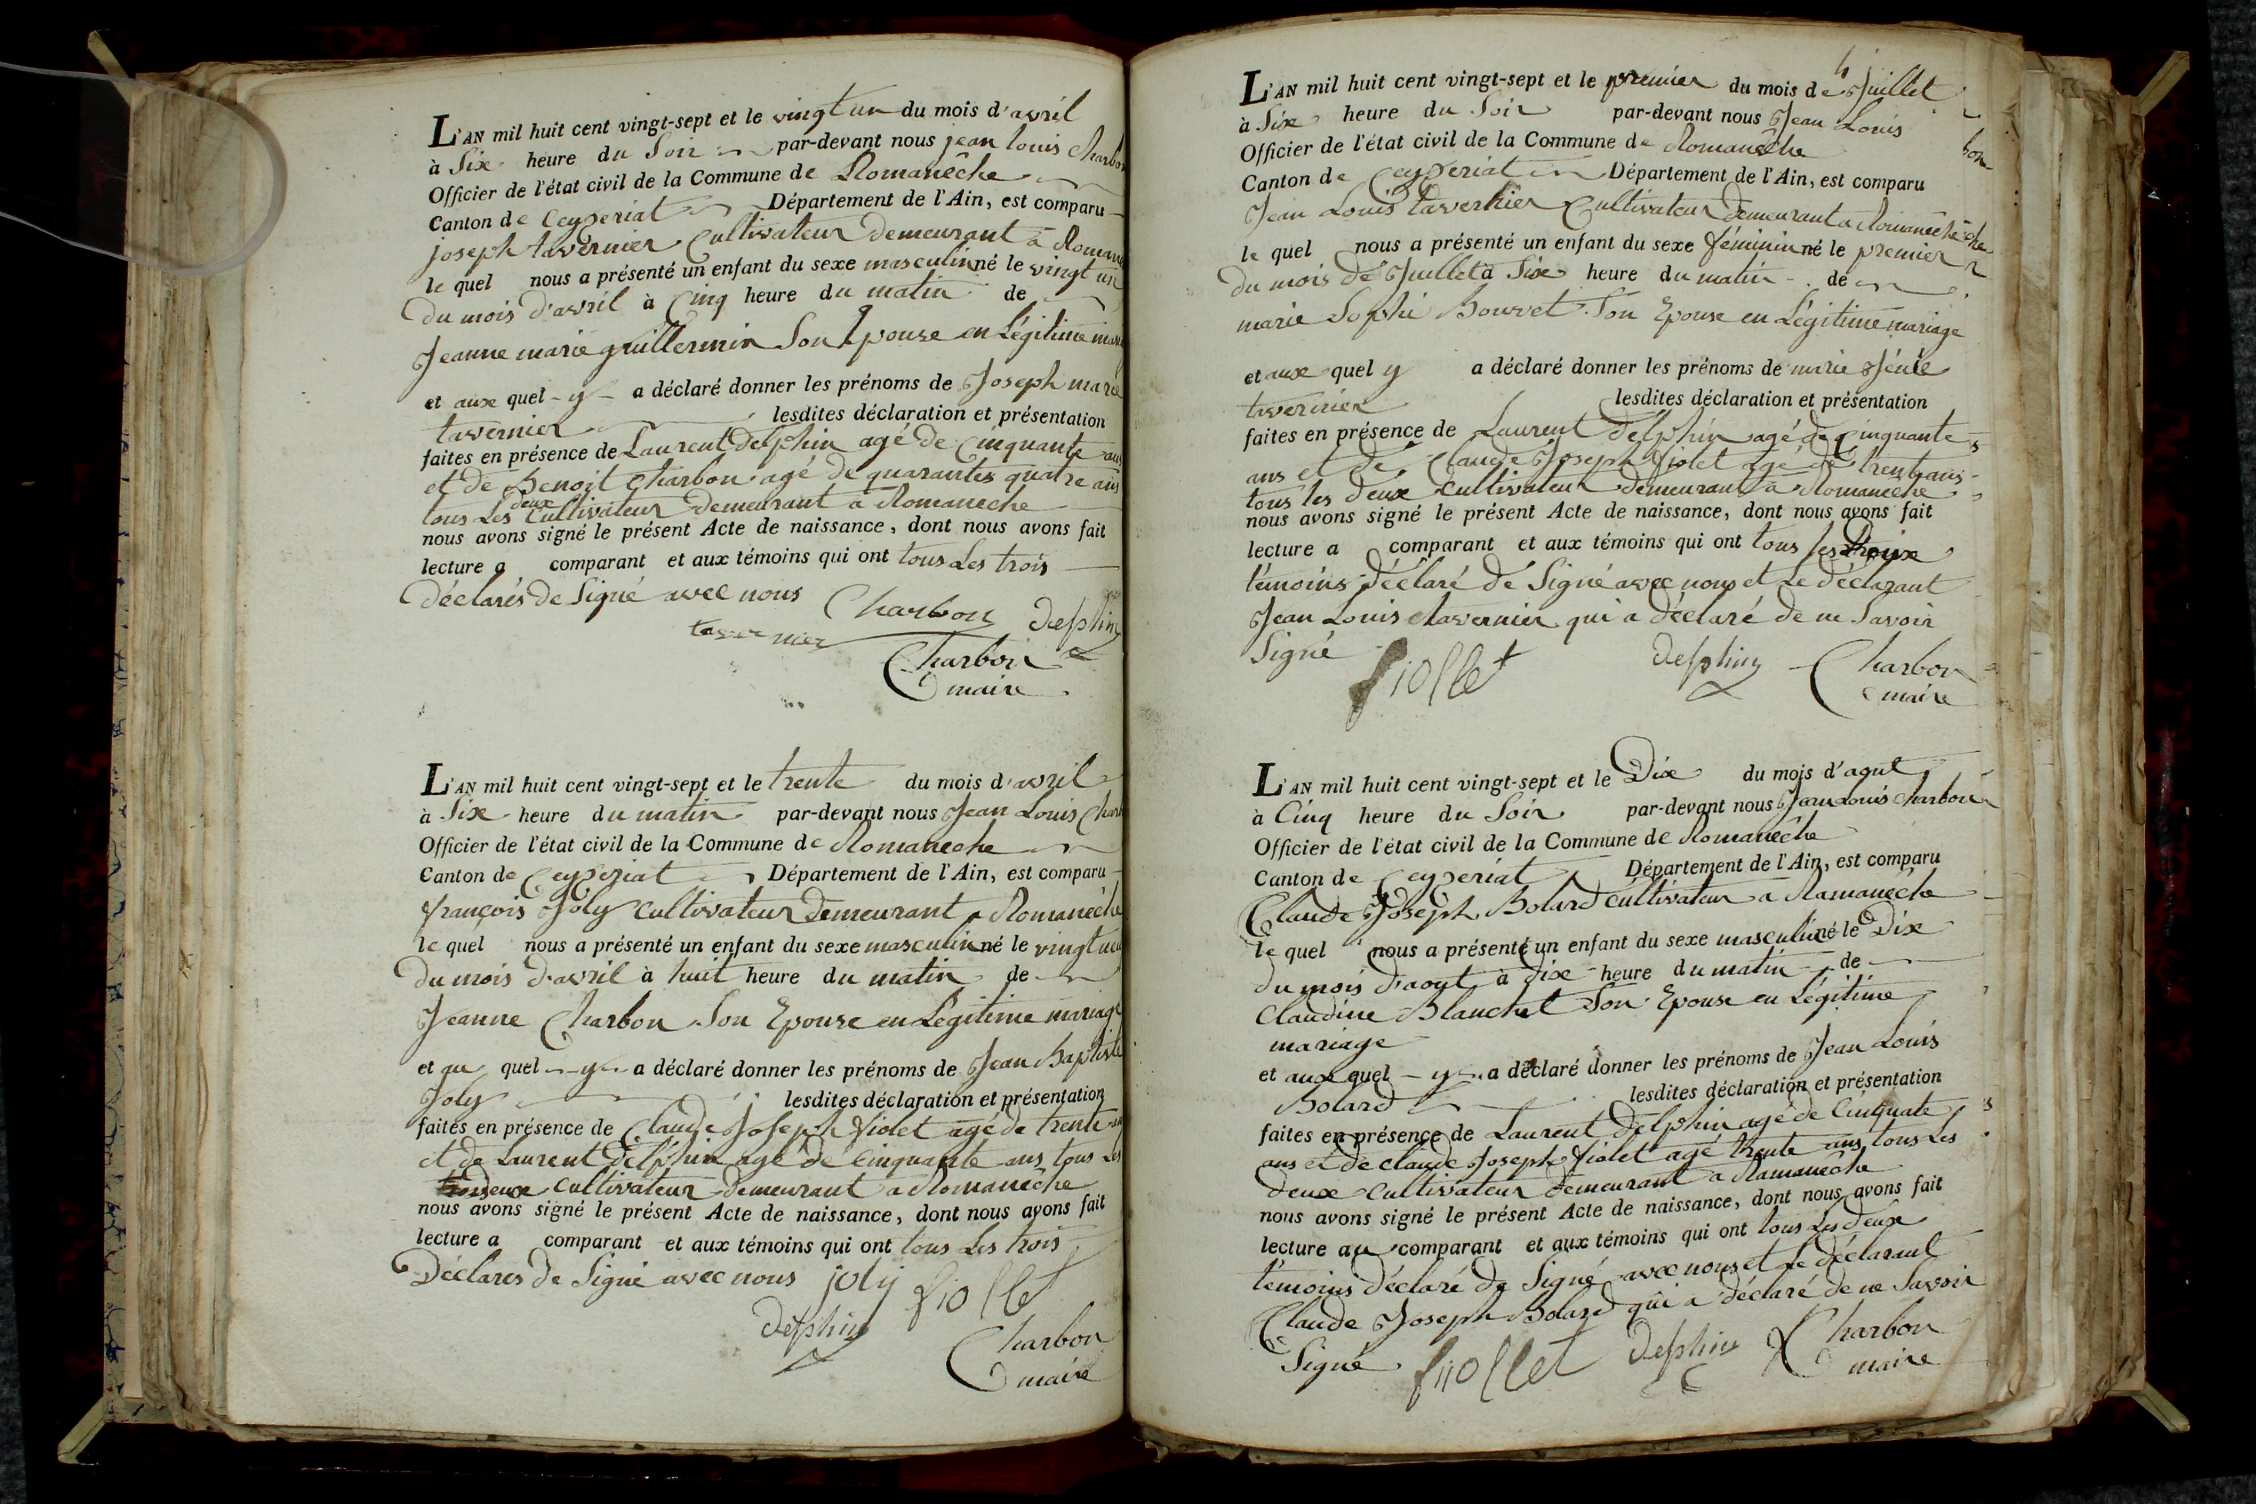 L'AN mil huit cent vingt-sept et le vingt un du mois d'avril
à Six heure du Soir par-devant nous jean louis Charbon
Officier de l'état civil de la Commune de Romanêche
Canton de Ceyzeriat Département de l'Ain, est comparu
joseph tavernier Cultivateur Demeurant à Romane
le quel nous a présenté un enfant du sexe masculin né le vingt un
du mois d'avril à Cinq heure du matin de
Jeanne marie guillermin Son Epouse en Légitime
et aux quel y a déclaré donner les prénoms de Joseph marie
tavernier lesdites déclaration et présentation
faites en présence de Laurent Delphin agé de Cinquante ans
et de Benoit Charbon agé de quarantes quatre ans
tous Les deux Cultivateur Demeurant a Romanêche
nous avons signé le présent Acte de naissance, dont nous avons fait
lecture a comparant et aux témoins qui ont tous Les trois
Déclarés de Signé avec nous Charbon Delphin
tavernier
Charbon
maire
L'AN mil huit cent vingt-sept et le trente du mois d'avril
à Six heure du matin par-devant nous Jean Louis Charb
Officier de l'état civil de la Commune de Romanêche
Canton de Ceyzeriat Département de l'Ain, est comparu
françois Joly cultivateur Demeurant a Romanêche
le quel nous a présenté un enfant du sexe masculin né le vingt
du mois d'avril à huit heure du matin de
Jeanne Charbon Son Epouse en Légitime mariage
et au quel y a déclaré donner les prénoms de Jean Baptiste
Joly lesdites déclaration et présentation
faites en présence de Claude Joseph Fiolet agé de trente ans
et de Laurent Delphin agé de Cinquante ans tous Les
deux cultivateur demeurant a Romanêche
nous avons signé le présent Acte de naissance, dont nous avons fait
lecture a comparant et aux témoins qui ont tous Les trois
Déclares de Signé avec nous joly fiollet
Delphin
Charbon
maire
4
L'AN mil huit cent vingt-sept et le premier du mois de Juillet
à Six heure du Soir par-devant nous Jean Louis
Officier de l'état civil de la Commune de Romanêche bon
Canton de Ceyzeriat Département de l'Ain, est comparu
Jean Louis tavernier Cultivateur Demeurant a Romanêche
le quel nous a présenté un enfant du sexe féminin né le premier
du mois de Juillet à Six heure du matin de
marie Sophie Bouvet Son Epouse en Légitime mariage
et aux quel y a déclaré donner les prénoms de marie
tavernier lesdites déclaration et présentation
faites en présence de Laurent Delphin agé de Cinquante
ans et de Claude Joseph Fiolet agé de trent ans
tous les deux cultivateur demeurant a Romanêche
nous avons signé le présent Acte de naissance, dont nous avons fait
lecture a comparant et aux témoins qui ont tous les
témoins déclaré de Signé avec nous et Le déclarant
Jean Louis tavernier qui a déclaré de ne Savoir
Signé
fiollet Delphin Charbon
maire
L'AN mil huit cent vingt-sept et le Dix du mois d'aout
à Cinq heure du Soir par-devant nous Jean Louis Charbon
Officier de l'état civil de la Commune de Romanêche
Canton de Ceyzeriat Département de l'Ain, est comparu
Claude Joseph Bolard cultivateur a Romanêche
le quel nous a présenté un enfant du sexe masculin né le Dix
du mois d'aout à dix heure du matin de
Claudine Blanchet Son Epouse en Légitime
mariage
et aux quel y a déclaré donner les prénoms de Jean Louis
Bolard lesdites déclaration et présentation
faites en présence de Laurent Delphin agé de Cinquate
ans et de claude Joseph Fiolet agé trente ans tous Les
deux cultivateur demeurant a Romanêche
nous avons signé le présent Acte de naissance, dont nous avons fait
lecture au comparant et aux témoins qui ont tous Les deux
témoins déclaré de Signé avec nous et Le déclarant
Claude Joseph Bolard qui a déclaré de ne Savoir
Signé fiollet Delphin Charbon
maire